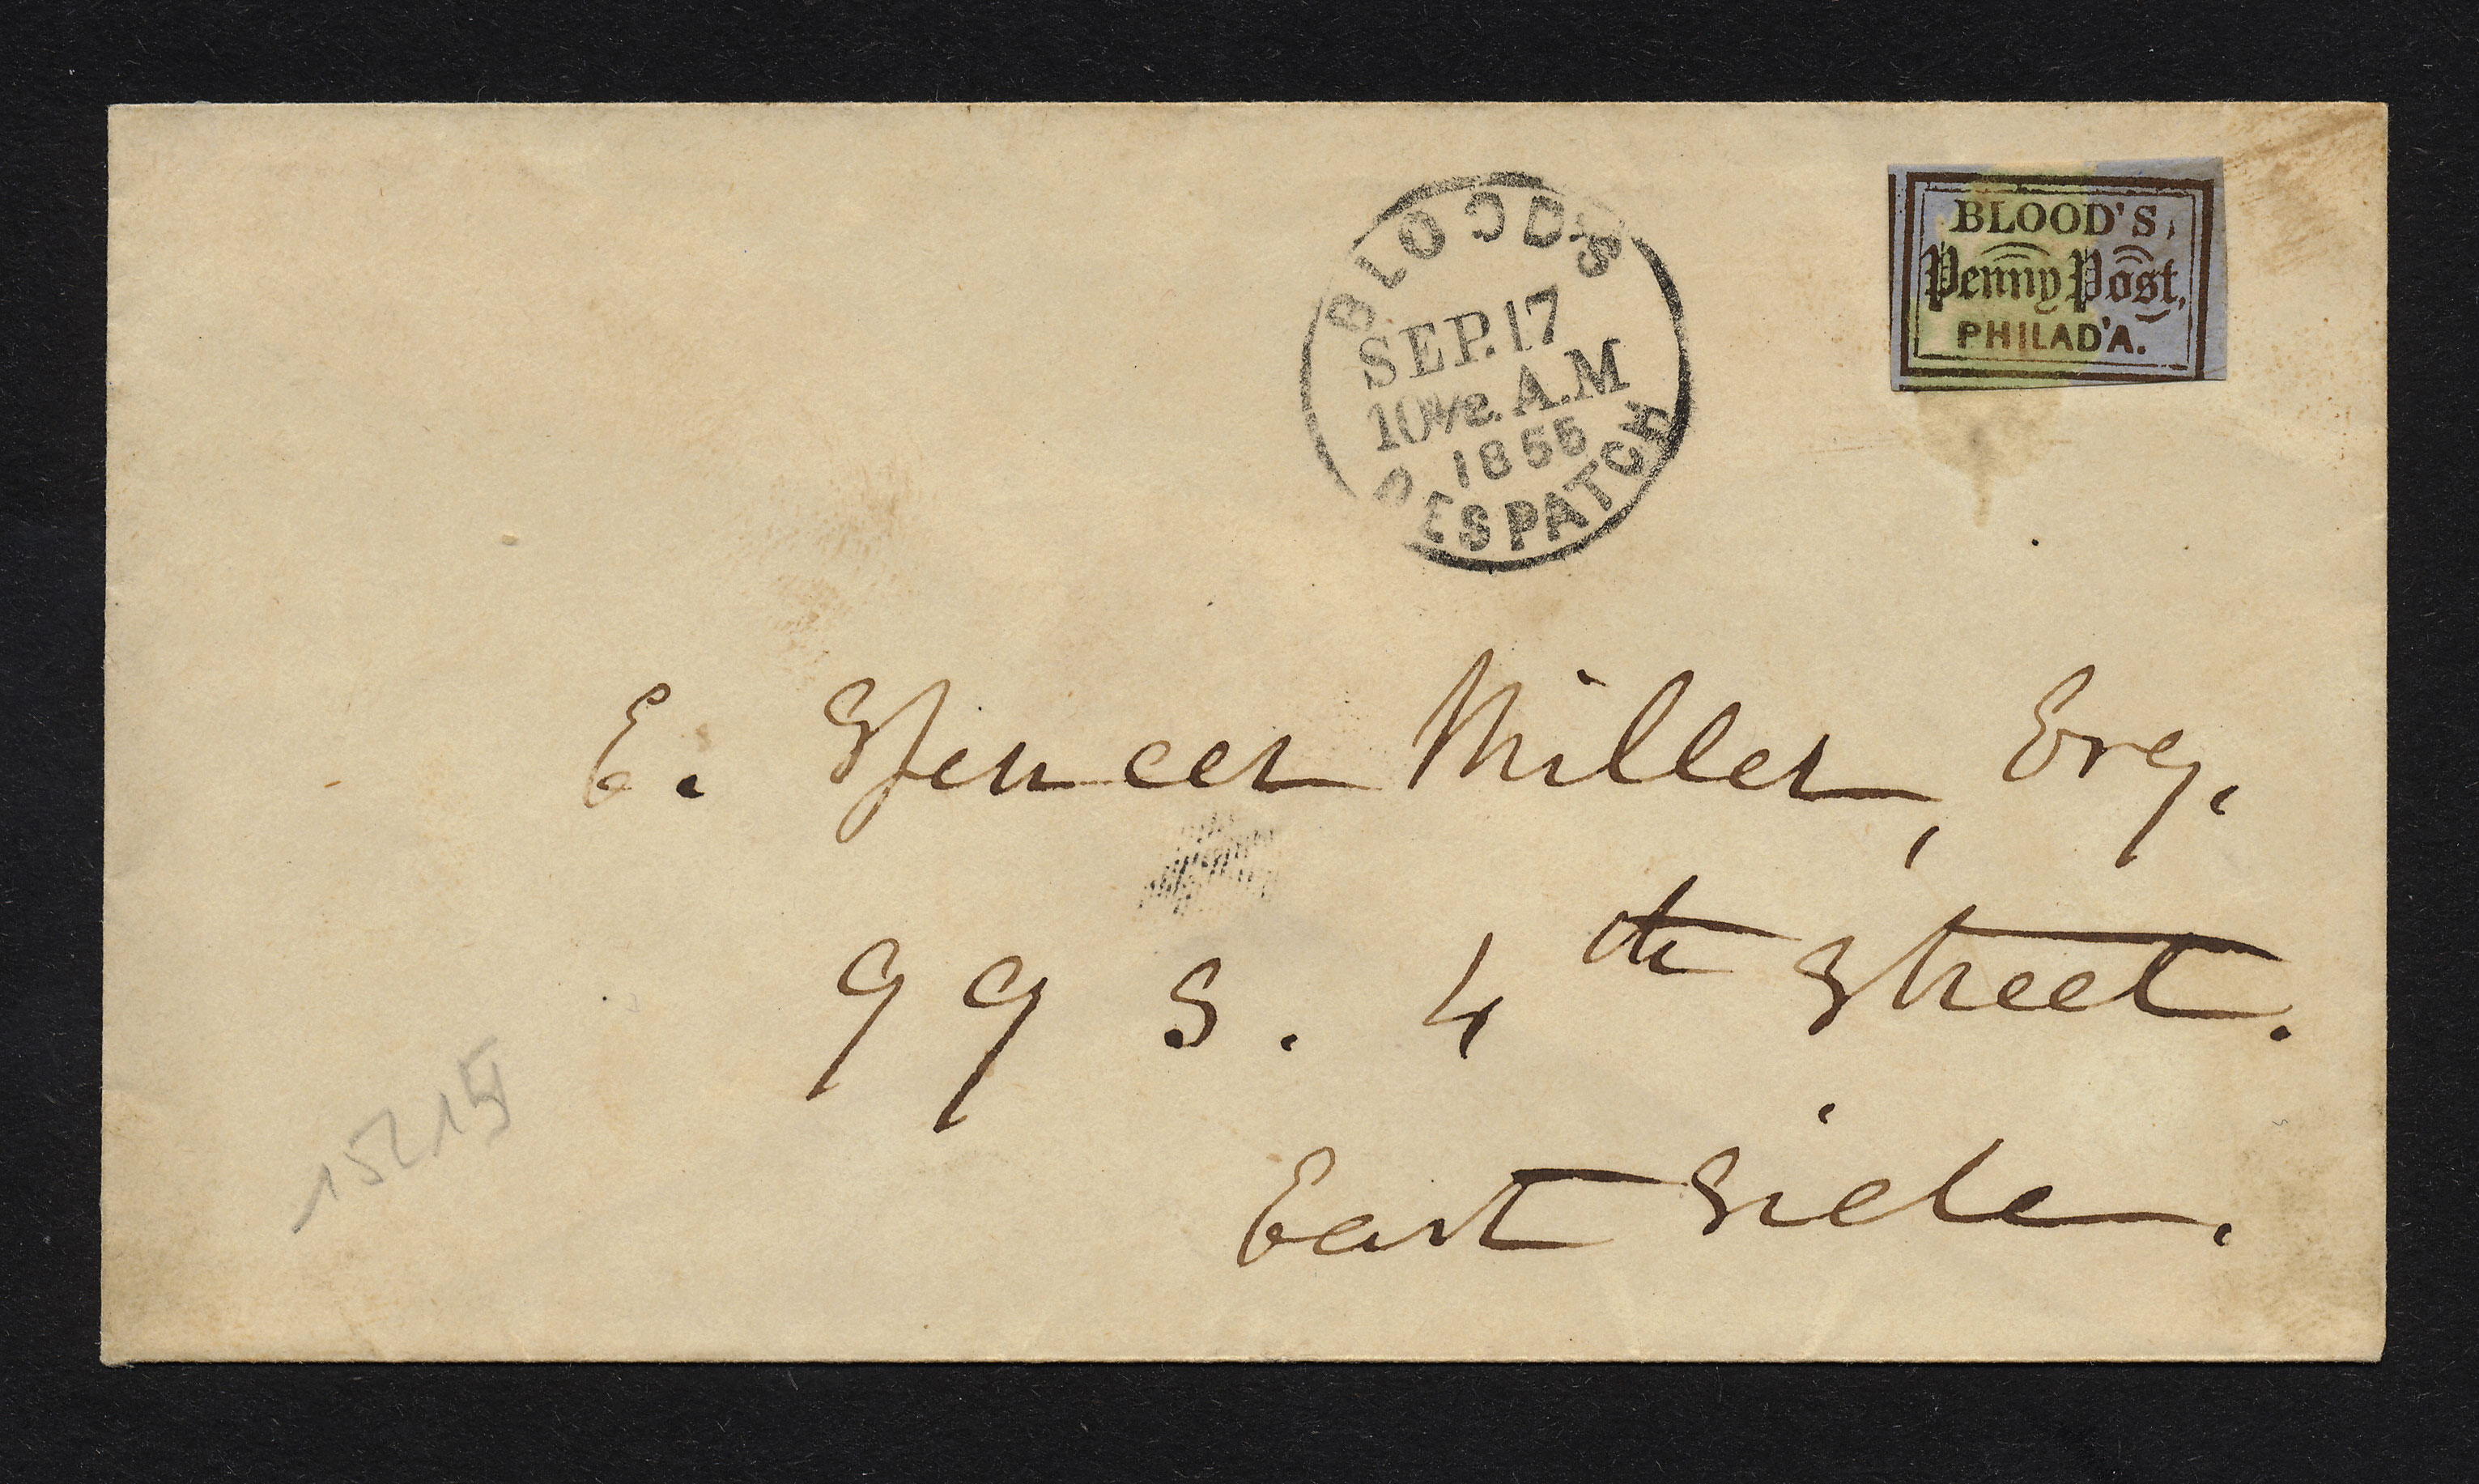 BLOOD'S
SEP. 17
10½ A.M
1855
DESPATCH
BLOOD'S
Penny Post,
PHILAD'A.
E. Spencer Miller, Esq.
99 S. 4th Street.
East Side.